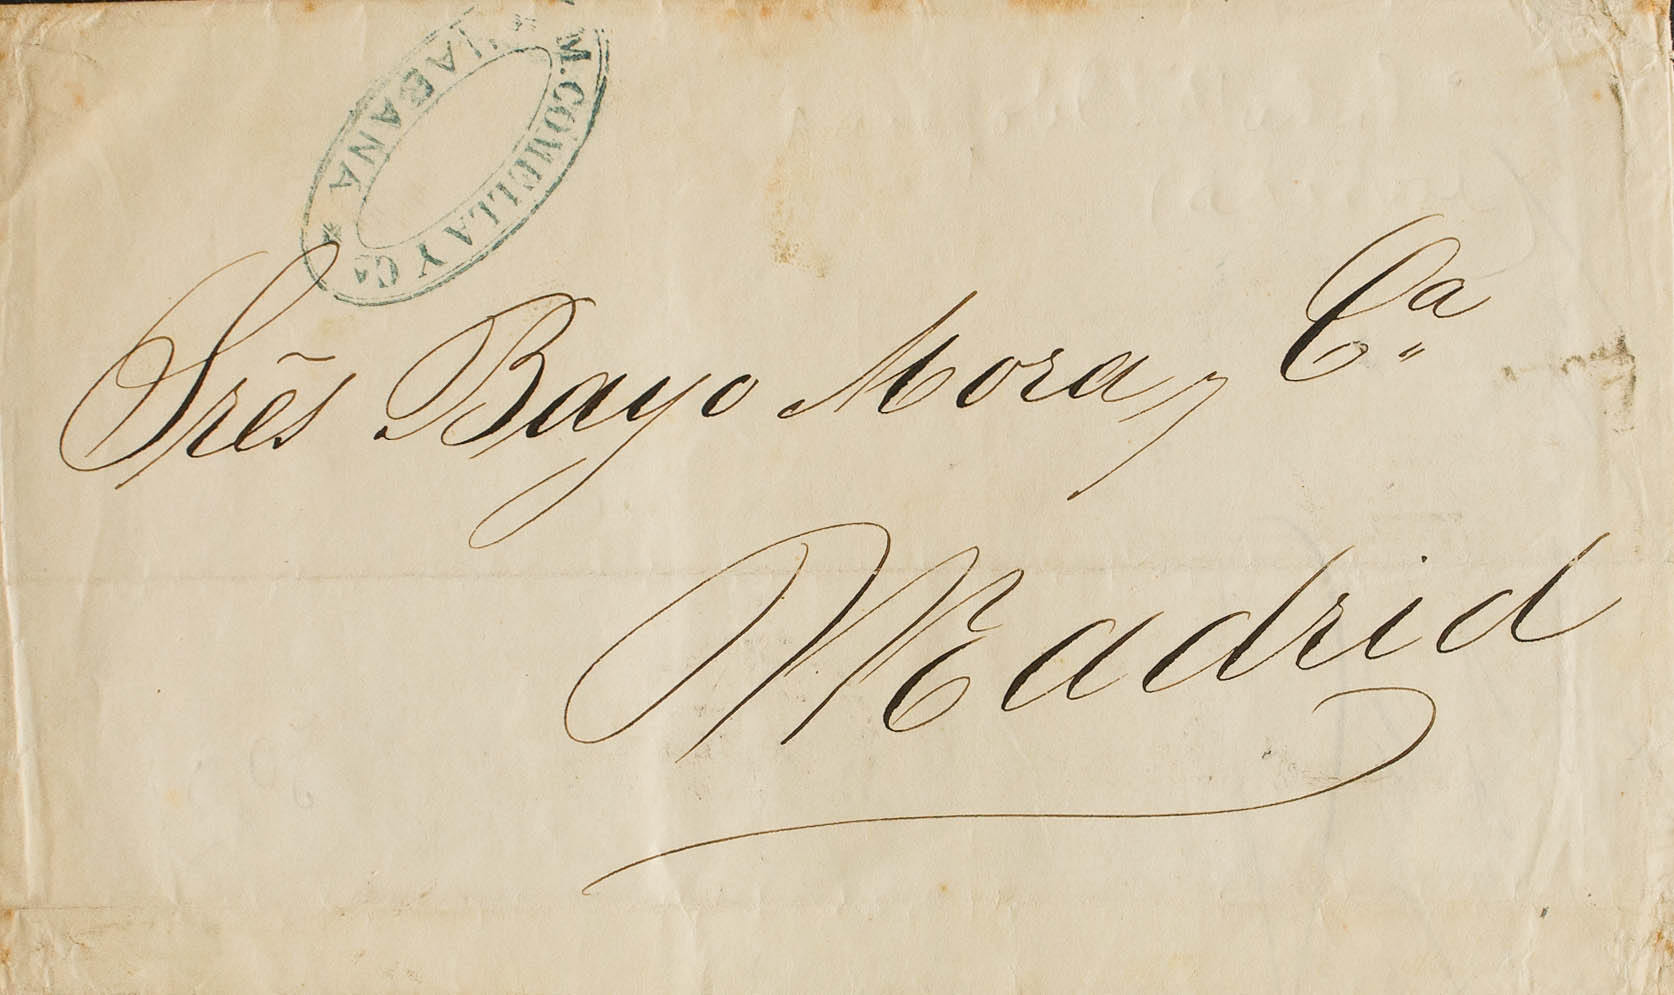 M. COMELLA Y Cª
* HABANA *
Sres Bayo Mora y Cª
Madrid